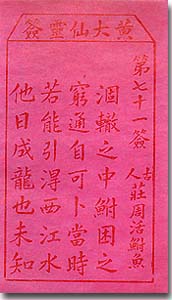 黃大仙靈簽
第七十一簽
古人 莊周活鮒魚
涸轍之中鮒困之
窮通自可卜當時
若能引得西江水
他日成龍也未知